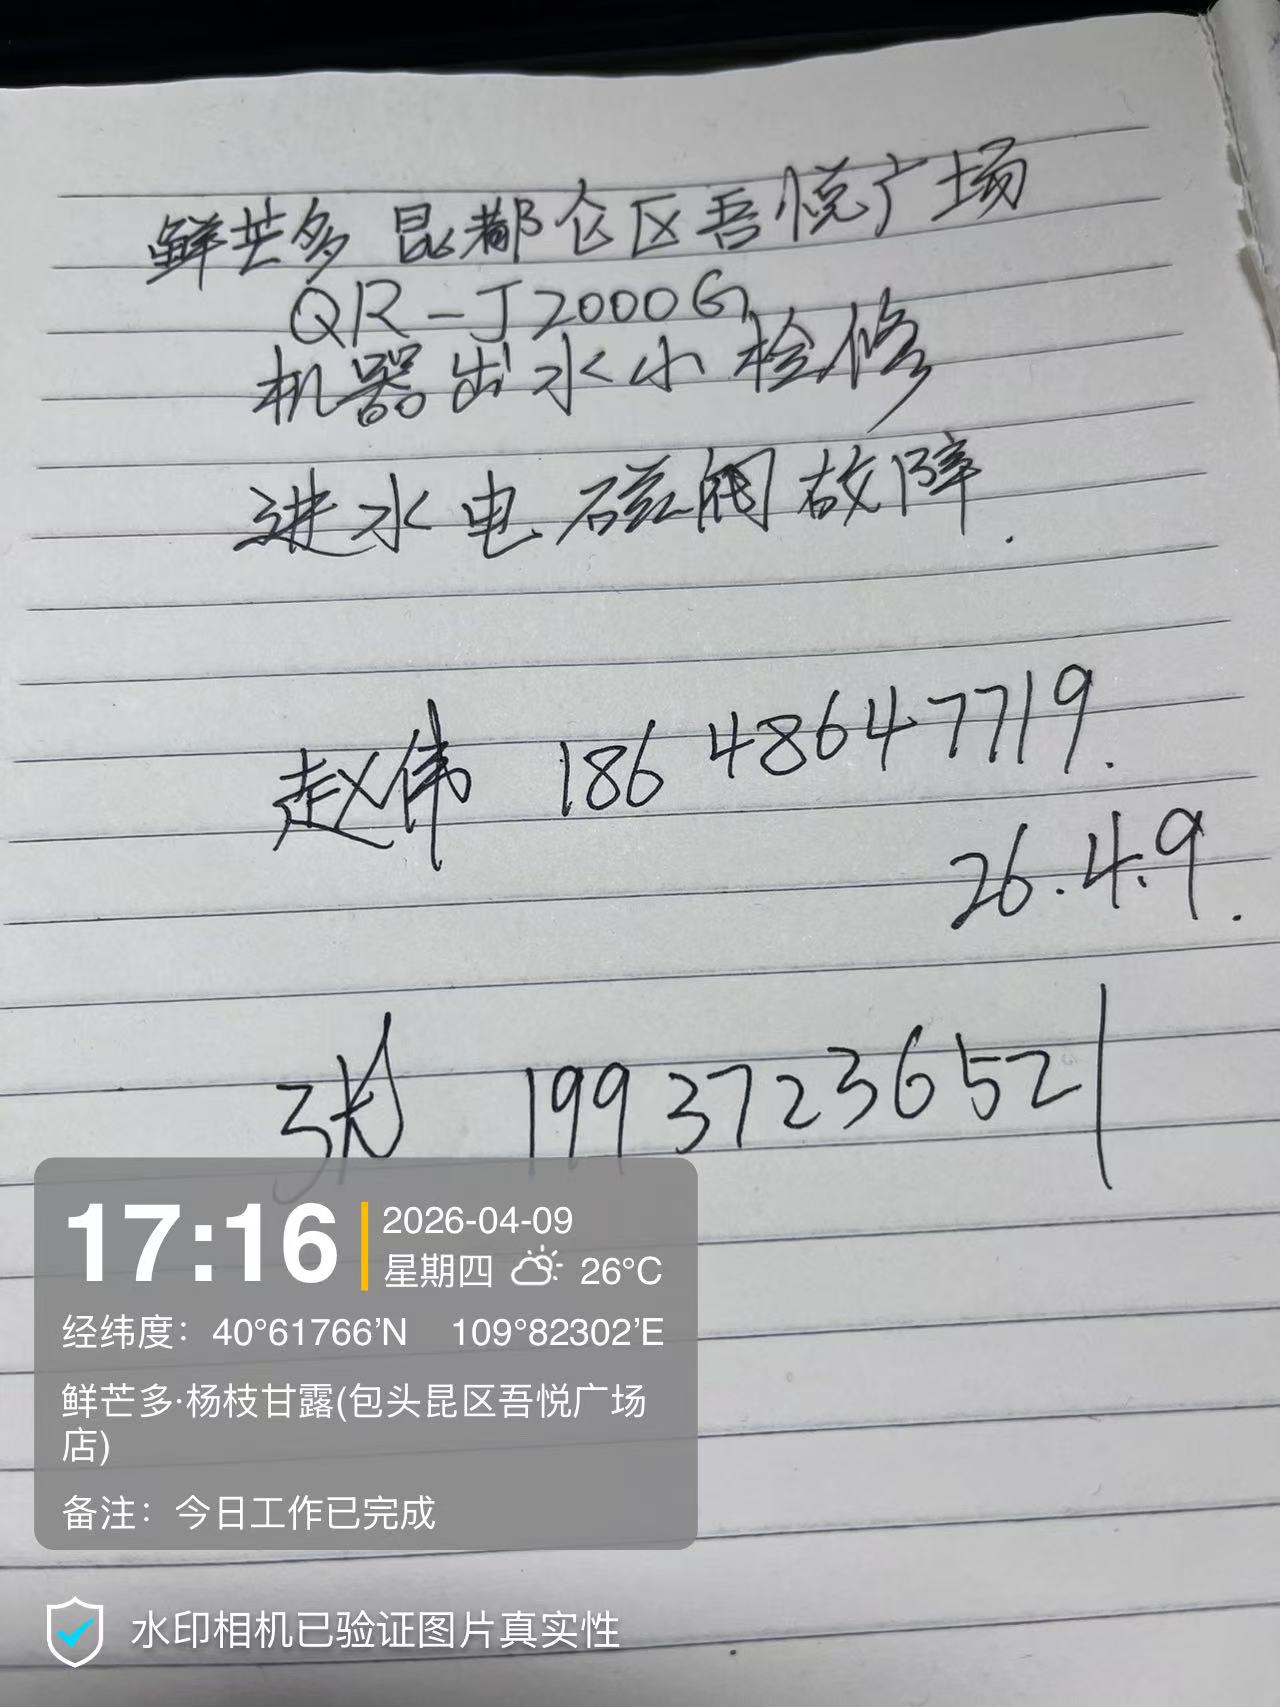 鲜芒多 昆都仑区吾悦广场
QR-J2000G
机器出水小检修
进水电磁阀故障.
赵伟 18648647719.
26.4.9.
张 19937236521
17:16
2026-04-09
星期四 26°C
经纬度：40°61766'N 109°82302'E
鲜芒多·杨枝甘露(包头昆区吾悦广场
店)
备注：今日工作已完成
水印相机已验证图片真实性